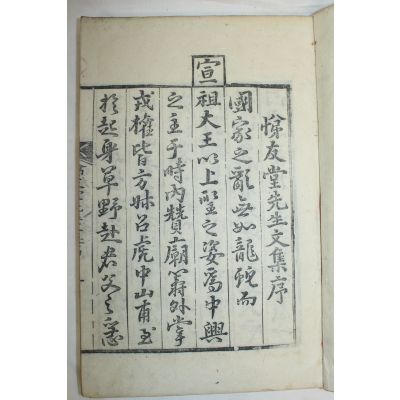 悌友堂先生文集序
國家之亂無如龍蛇而
宣
祖大王以上聖之姿爲中興
之主于時內贊廟籌外掌
戎權皆方姝呂虎中山甫至
於起身草野赴君父之急